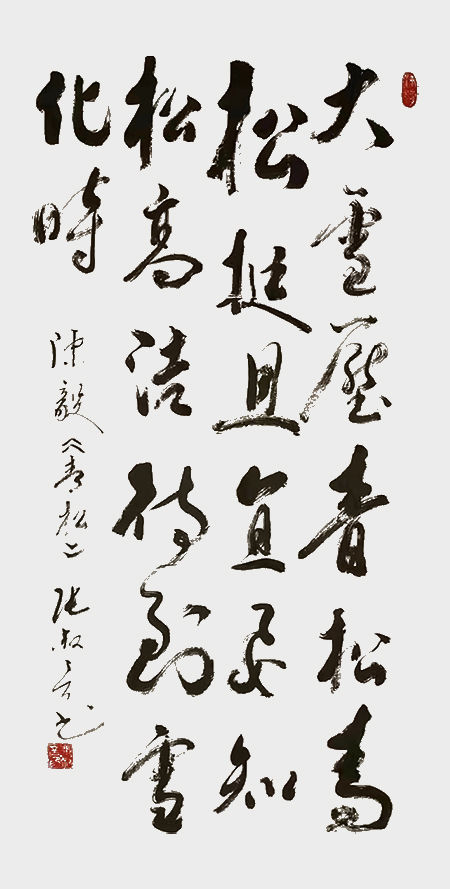 大雪壓青松青
松挺且直要知
松高洁待到雪
化時
陳毅《青松》张叔书